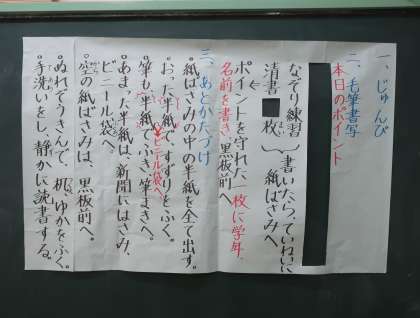 一、じゅんび
二、毛筆書写
本日のポイント
なぞり練習 書いたら、ていねいに
清書 枚 紙ばさみへ
ポイントを守れた一枚に学年、
名前を書き、黒板前へ
三、あとかたづけ
・紙ばさみの中の半紙を全て出す。
・おった半紙で、すずりをふく。
ビニール袋へ
・筆も半紙でふき、筆まきへ。
・あまった半紙は、新聞にはさみ、
ビニール袋へ。
・空の紙ばさみは、黒板前へ。
・ぬれぞうきんで、机、ゆかをふく。
・手洗いをし、静かに読書する。